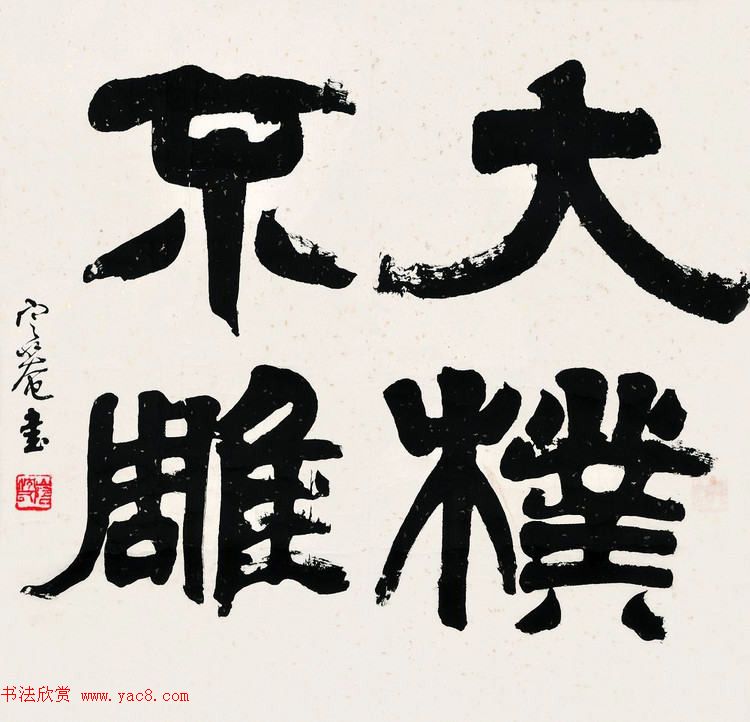 大樸
不雕
菴書
书法欣赏 www.yac8.com